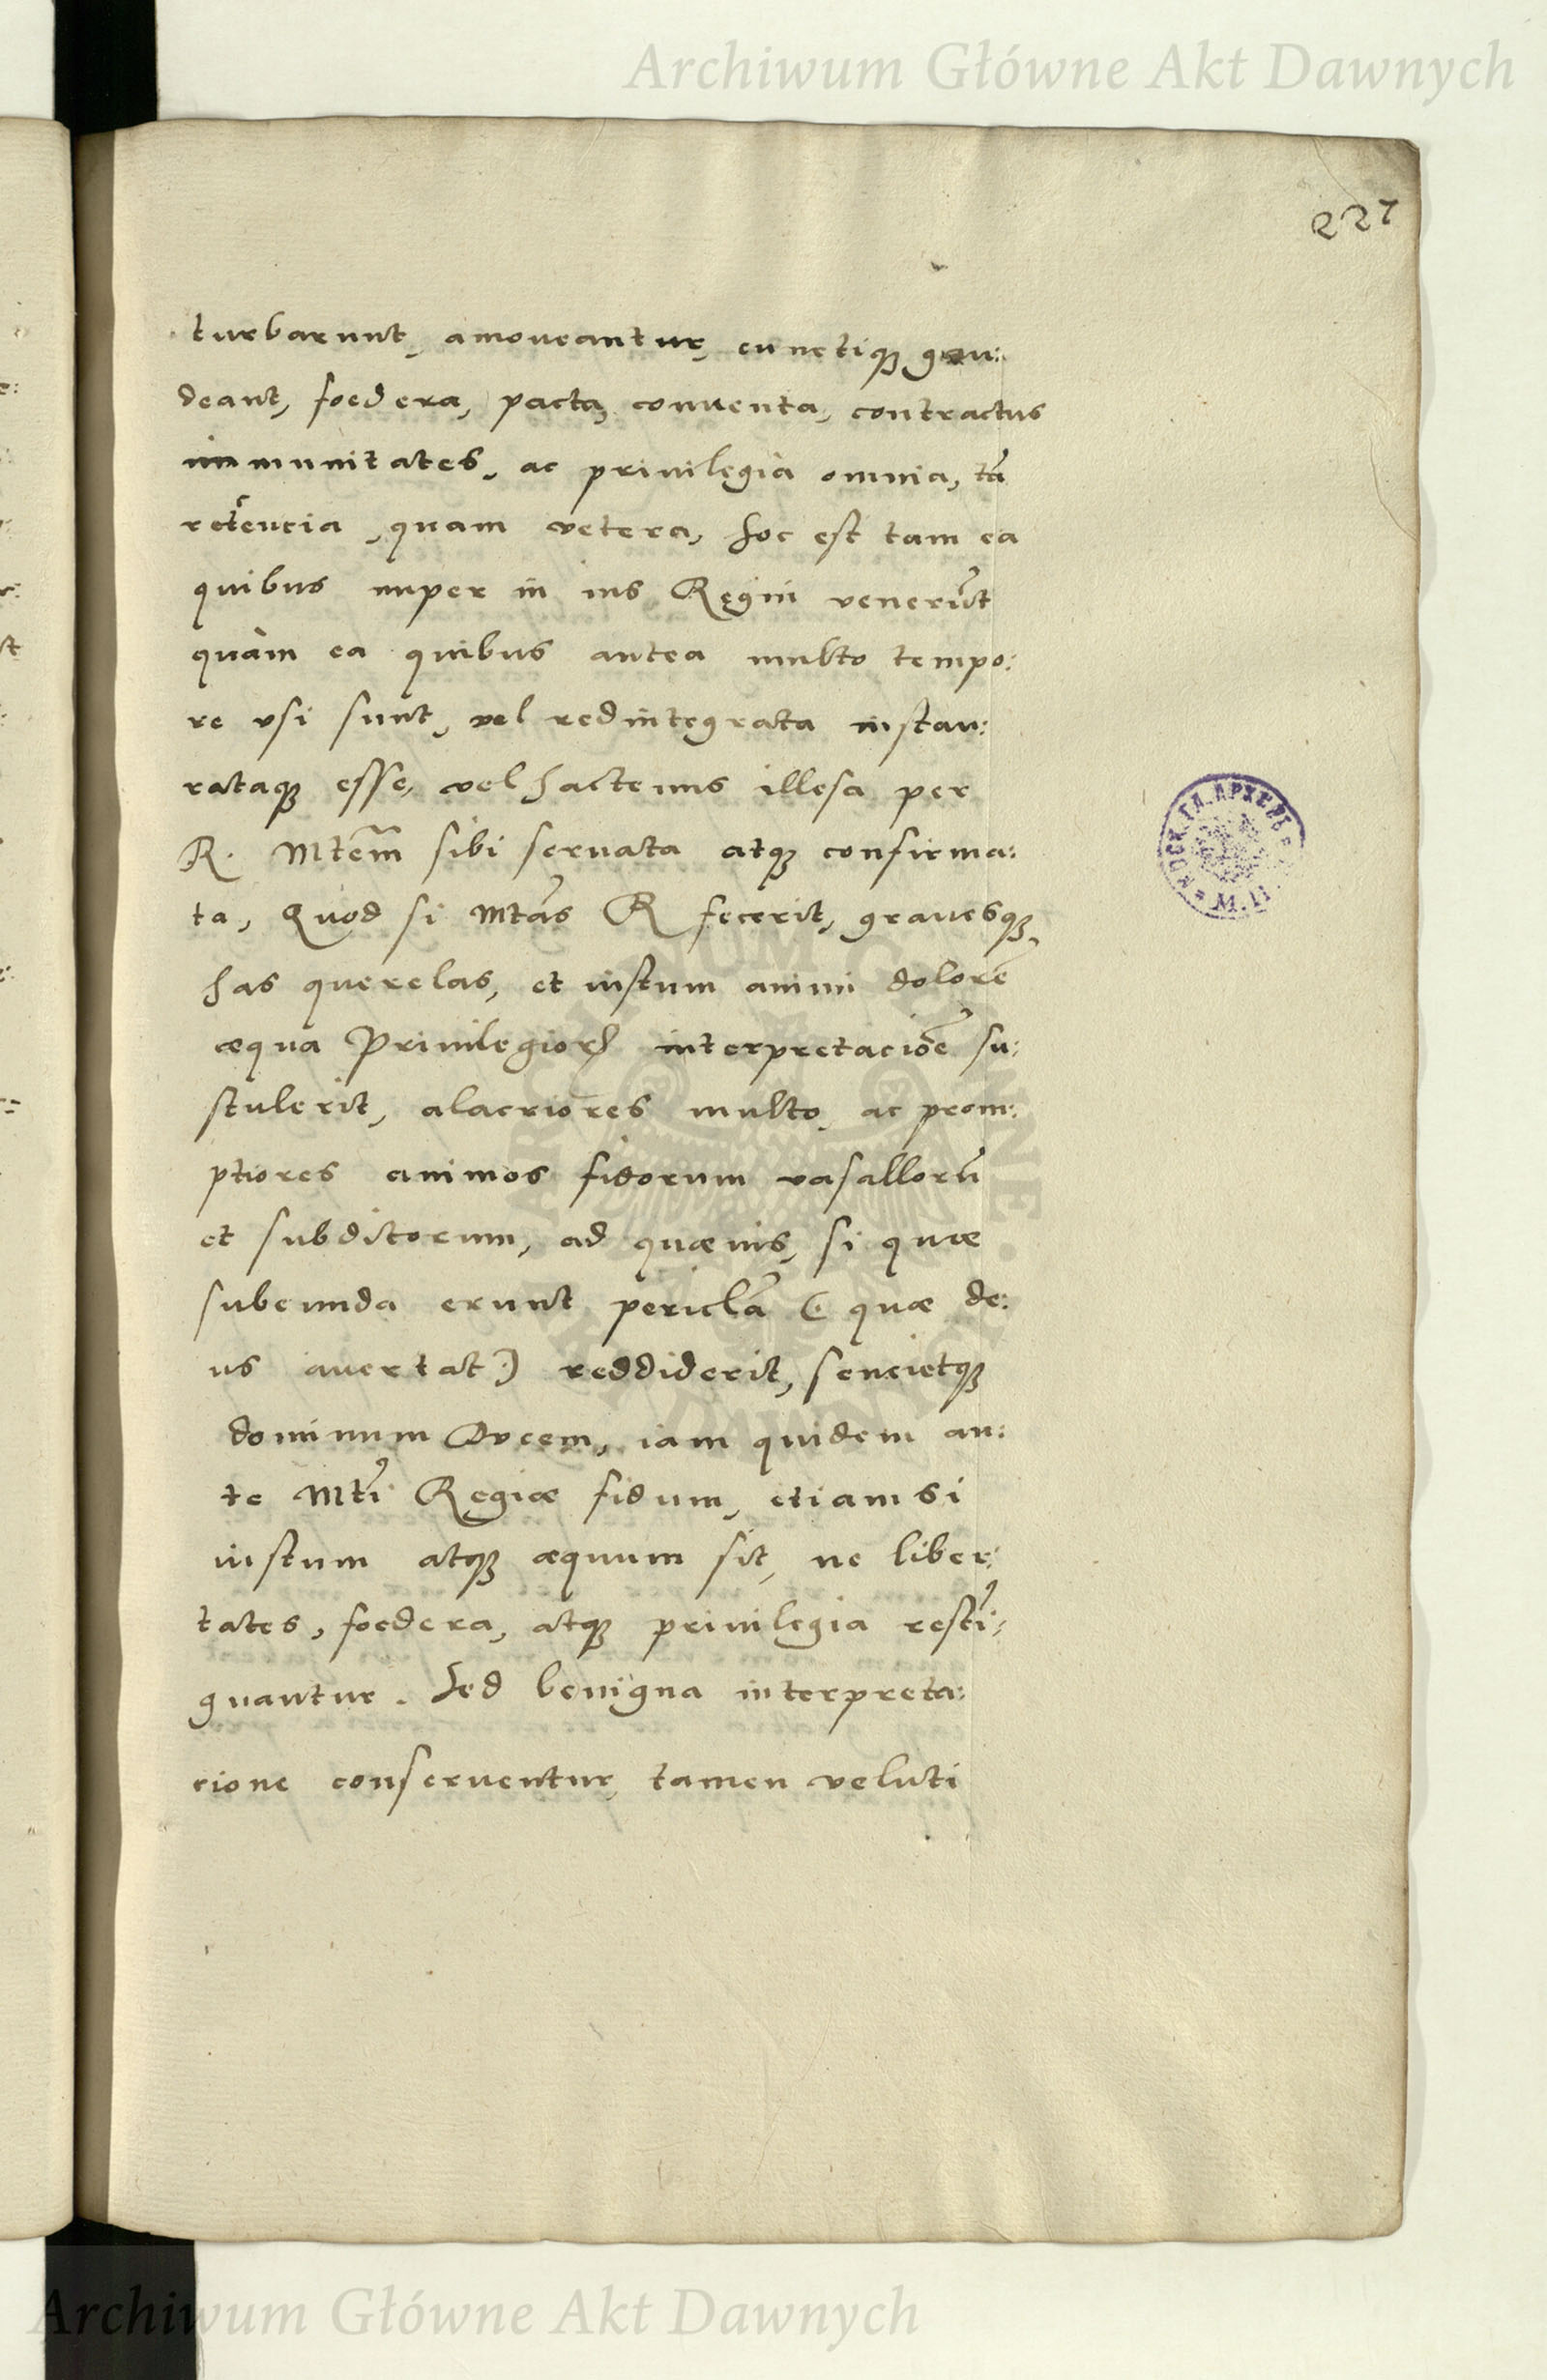 Archiwum Główne Akt Dawnych
227
turbarunt, amoueantur, cunctiq₃ gau:
deant, foedera, pacta, conuenta, contractus
immunitates, ac priuilegia omnia, tā
recencia, quam vetera, hoc est tam ea
quibus nuper in ius Regni venerūt
quàm ea quibus antea multo tempo:
re vsi sunt, vel redintegrata instau:
rataq₃ esse, vel hactenus illesa per
R. Mtēm sibi seruata atq₃ confirma:
ta, Quod si Mtās R fecerit, grauesq₃
has querelas, et iustum animi dolorē
æqua Priuilegiorꝝ interpretaciōe su:
stulerit, alacriores multo, ac prom:
ptiores animos fidorum vasallorū
et subditorum, ad quæuis, si quæ
subeunda erunt periclā (. quæ de:
us auertat .) reddiderit, sencietq₃
dominum Ducem, iam quidem an:
te Mtī Regiæ fidum, etiamsi
iustum atq₃ æquum sit, ne liber:
tates, foedera, atq₃ priuilegia restī:
guantur. Sed benigna interpreta:
cione conseruentur, tamen veluti
Archiwum Główne Akt Dawnych